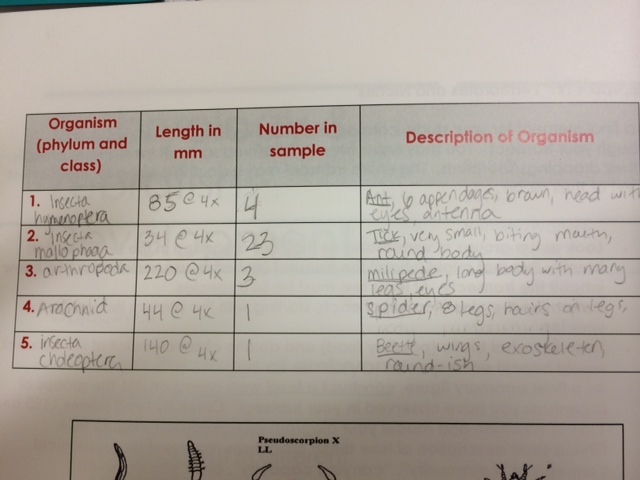 Organism
(phylum and
class)
Length in
mm
Number in
sample
Description of Organism
1. Insecta
hymenoptera
85 @ 4x
4
Ant, 6 appendages, brown, head with
eyes, antenna
2. Insecta
mallophaga
34 @ 4x
23
Tick, very small, biting mouth,
round body
3. arthropoda
220 @ 4x
3
milipede, long body with many
legs, eyes
4. Arachnid
44 @ 4x
1
spider, 8 legs, hairs on legs,
5. insecta
choleoptera
140 @ 4x
1
Beetle, wings, exoskeleton,
round-ish
Pseudoscorpion X
LL